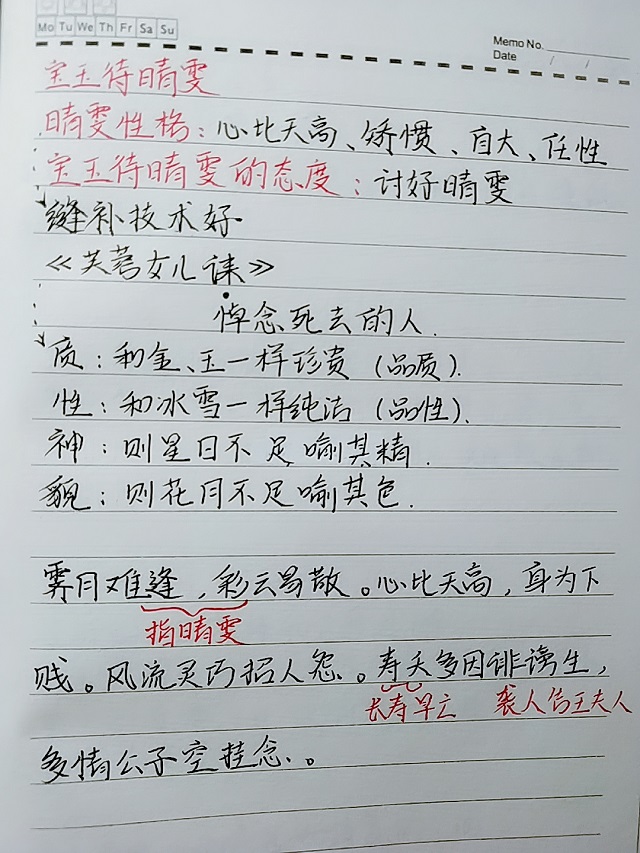 Mo Tu We Th Fr Sa Su
Memo No.
Date / /
宝玉待晴雯
晴雯性格：心比天高、矫惯、自大、任性
宝玉待晴雯的态度：讨好晴雯
缝补技术好
《芙蓉女儿诔》
悼念死去的人.
质：和金、玉一样珍贵（品质）.
性：和冰雪一样纯洁（品性）.
神：则星日不足喻其精.
貌：则花月不足喻其色.
霁月难逢，彩云易散。心比天高，身为下
指晴雯
贱。风流灵巧招人怨。寿夭多因诽谤生，
长寿早亡 袭人告王夫人
多情公子空挂念.。